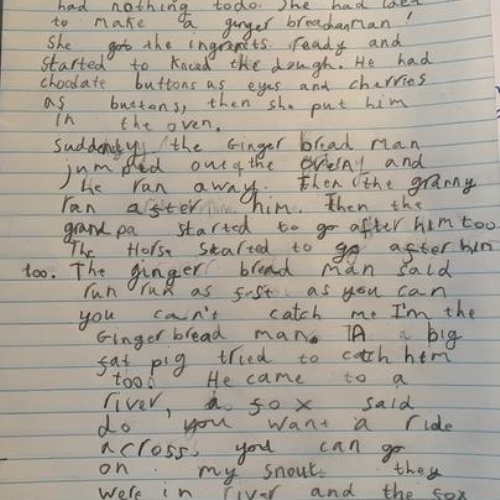 had nothing todo. She had
to make a ginger breadman!
She got the ingrients ready and
started to knead the dough. He had
choclate buttons as eyes and cherries
as buttons, then she put him
in the oven.
Suddenly the Ginger bread man
jumped out of the and
he ran away. Then the granny
ran after him. Then the
grand pa started to go after him too
The Horse started to go after him
too. The ginger bread man said
run run as fast as you can
you cain't catch me I'm the
Ginger bread man. A big
fat pig tried to catch him
too. He came to a
river, a fox said
do you want a ride
across. you can go
on my snout. they
were in river and the fox